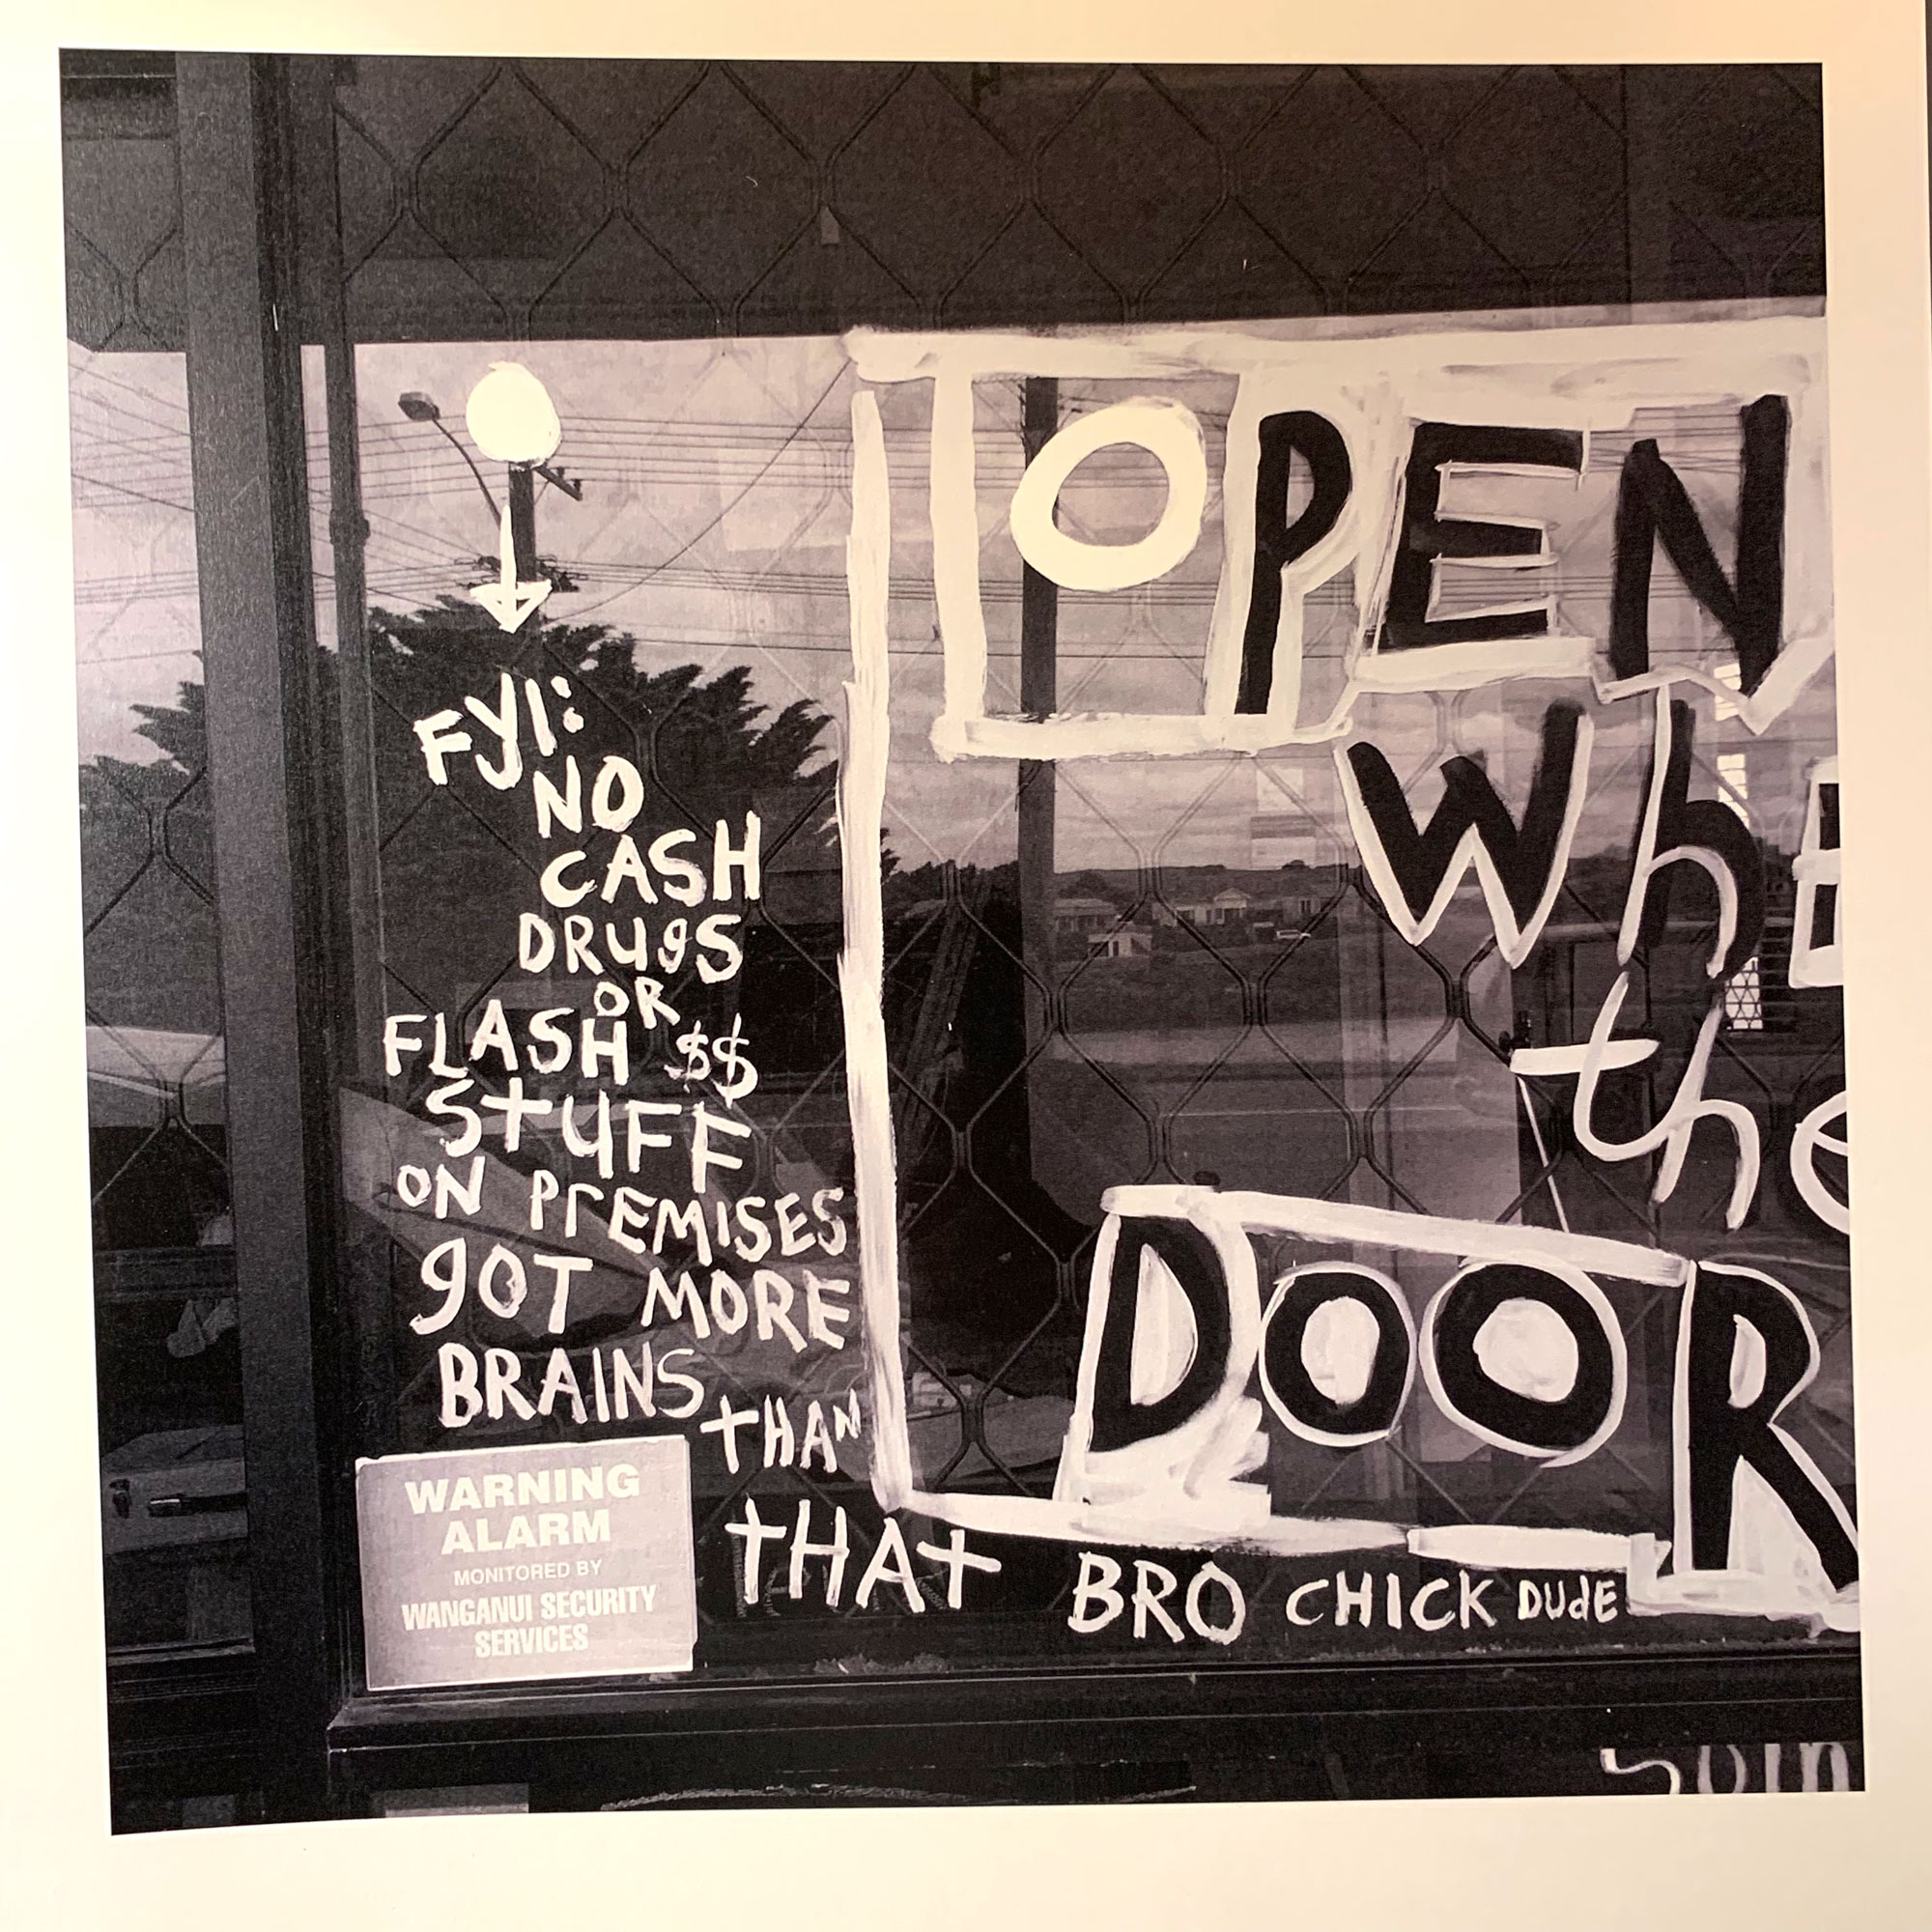 FYI:
NO
CASH
DRUgS
OR
FLASH $$
STUFF
ON PrEMISES
gOT MORE
BRAINS THAN
THAT BRO CHICK DUdE
WARNING
ALARM
MONITORED BY
WANGANUI SECURITY
SERVICES
OPEN
Whe
the
DOOR